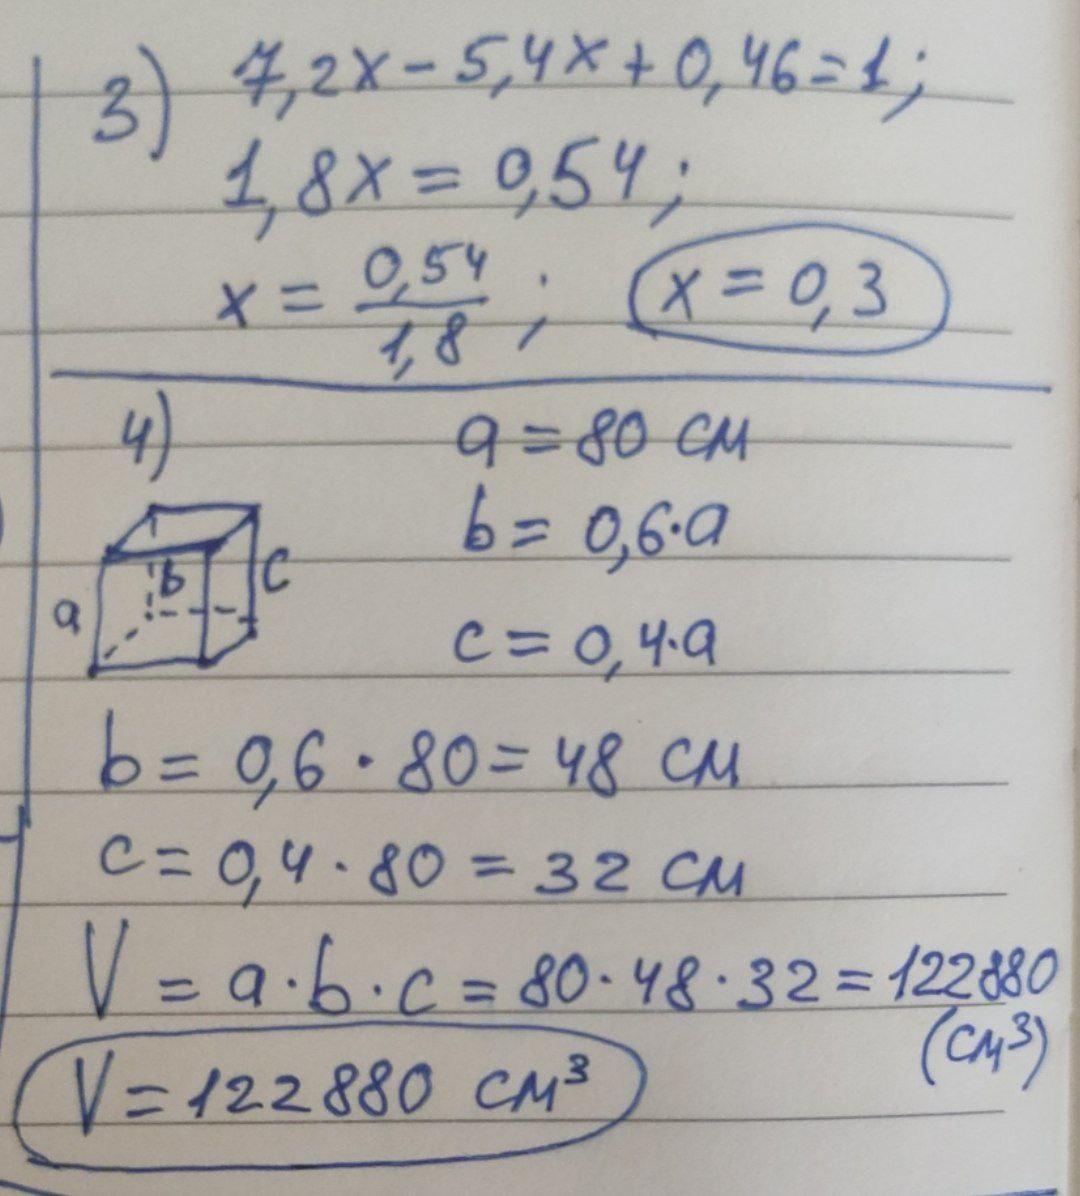 3) 7,2x - 5,4x + 0,46 = 1;
1,8x = 0,54;
x = 0,54/1,8; x = 0,3
4) a = 80 см
b = 0,6·a
a b c
c = 0,4·a
b = 0,6 · 80 = 48 см
c = 0,4 · 80 = 32 см
V = a·b·c = 80·48·32 = 122880
(см³)
V = 122880 см³